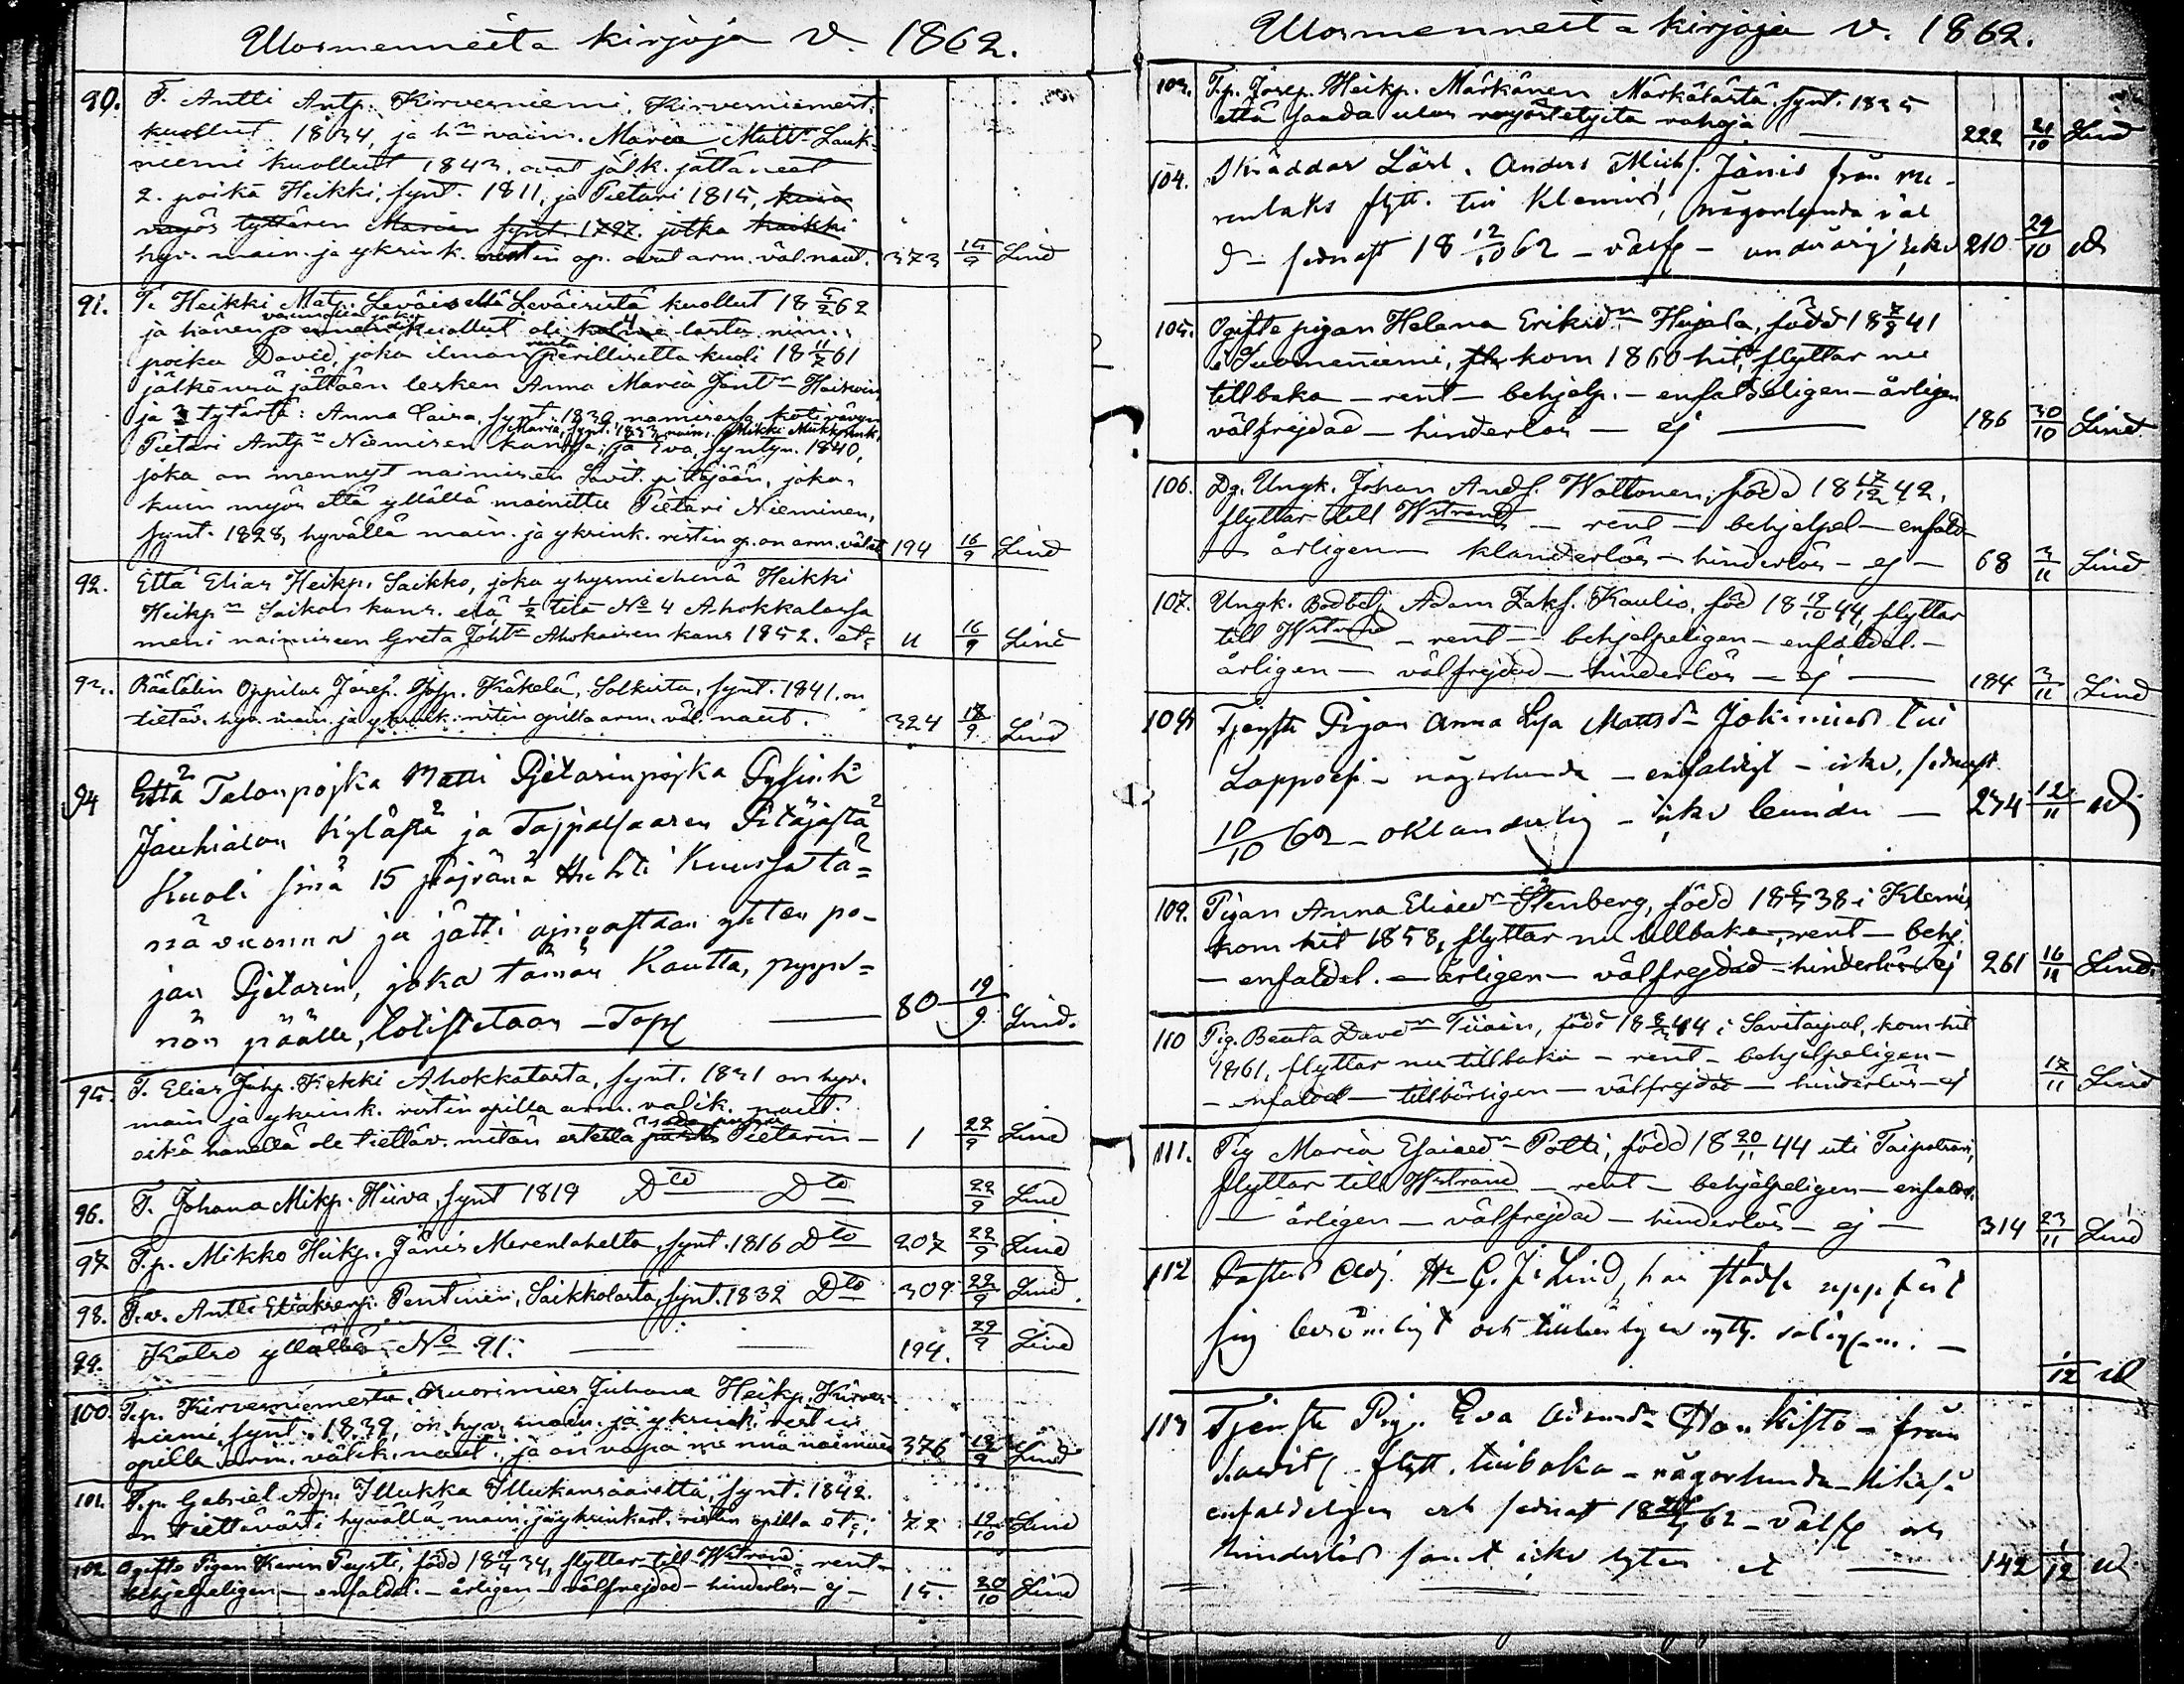 Ulosmenneitä kirjoja V. 1862.
90. T. Antti Antp. Kirvesniemi, Kirvesniemest.
kuollut 1834, ja hn vaim. Maria Mattr Lauk=
niemi kuollut 1843, ovat jälk. jättäneet
2. poika Heikki, synt. 1811, ja Pietari 1815,
myös tyttären Marian synt. 1797. jotka kaikki
hyv. main. ja ykrink. ristin op. ovat arm. väl. naut. 373 15/9 Lind
91. T. Heikki Matp. Leväis eli Leväisistä kuollut 18 5/2 62
ja hänen kuollut oli 4 lasta nim.:
poika David, joka ilman perillisettä kuoli 18 11/7 61
jälkeensä jättäen lesken Anna Maria
ja 3 tytärtä: Anna Caisa, synt. 1830, naimisessa kotivävyn
Maria, synt. 1833, naim. Mikki
Pietari Antp. Niemisen kanssa; ja Eva, syntyn. 1840,
joka on mennyt naimiseen Savit. pitäjään, joka,
kuin myös että yllällä mainittu Pietari Nieminen,
synt. 1828, hyvällä main. ja ykrink. ristin op. on arm. välik 194 16/9 Lind
92. Että Elias Heikp. Saikko, joka yhysmiehenä Heikki
Heikp. Saikon kans. elä, 1/2 tila No 4 Ahokkalassa
meni naimiseen Greta Johtr Ahokaisen kans 1852. et= u 16/9 Lind
93. Räätälin Oppilas Josef. Josp. Käkelä, Solkista, synt. 1841. on
tiettäv. hyv. main. ja ykrink. ristin opilla arm. väl. naut. 324 18/9 Lind
94 Että Talonpojka Matti Pjetarinpojka
Jauhialan kylästä ja Tajpalsaaren Pitäjästä
Kuoli sinä 15 päjvänä Huhti Kuussa tä=
nä vuonna ja jätti ajnoastaan yhten po-
jan Pjetarin, joka tämän Kautta, pyyn=
nön päälle, totistetaan 80 19/9 Lind.
95. T. Elias Johp. Kekki Ahokkalasta, synt. 1831 on hyv.
main ja ykrink. ristin opilla arm. välik. naut.
eikä hänellä ole tiettäv. mitän estettä Pietarin- 1 22/9 Lind
96. T. Johana Mikp. Hiiva, synt 1819 Dto Dto 22/9 Lind
97 T.p. Mikko Heikp. Jänis Merenlahelta, synt. 1816 Dto 207 22/9 Lind
98. T.v. Antti Pentinen, Saikkolasta, synt. 1832 Dto 309 22/9 Lind.
99. Katso yllällä No 91: 194. 29/9 Lind
100. T.p. Kirvesniemestä, Nuorimies Juhana Heikp. Kirves-
niemi, synt. 1839, on hyv. main. ja ykrink. ristin
opilla arm. välik. naut., ja on vapa menmä naimisee 376 Lind
101. T.p. Gabriel Adp. Illukka Illukansaarelta, synt. 1842.
on tiettävästi hyvällä main. ja ykrinkert. ristin opilla et: 72 12/10 Lind
102 Ogifta Pigan Karin Peysti, född 18 34, flyttar till Wstrand - rent -
behjelpeligen - enfaldel. - årligen - välfrejdad - hinderlös - ej - 15. 20/10 Lind
Ulosmenneitä kirjoja V. 1862.
103. T.p. Josep. Heikp. Märkänen Märkälästä, synt. 1835
että saada ulos rahoja 222 21/10 Lind
104. Skräddar Lärl. Anders Michs. Jänis från Me-
renlaks flytt. till Klemis, någorlunda väl
sednast 18 12/10 62 - välfr - 210 29/10
105. Ogifta pigan Helena Eriksdr Hujala, född 18 7/9 41
i Suomenniemi, kom 1860 hit, flyttar nu
tillbaka - rent - behjelp. - enfaldeligen - årligen
välfrejdad - hinderlös - ej 186 30/10 Lind
106. Dg. Ungk. Johan Ands. Wattonen, född 18 17/12 42,
flyttar till Wstrand - rent - behjelpel - enfald
- årligen - klanderlös - hinderlös - ej - 68 3/11 Lind
107. Ungk. Adam Zaks. Kaulio, föd 18 19/10 44, flyttar
till Wstrand - rent - behjelpeligen - enfaldel. -
årligen - välfrejdad - hinderlös - ej 184 3/11 Lind
108 Tjenste Pigan Anna Lisa Mattsdr Jokinies till
Lappvesi - någorlunda - enfaldigt - sednast
10/10 62 - oklanderlig - 234 12/11
109. Pigan Anna Eliaedr Stenberg, född 18 38 i Klemis
kom hit 1858, flyttar nu tillbaka, rent - behj.
- enfaldel. - årligen - välfrejdad - hinderlös - ej 261 16/11 Lind.
110 Pig. Beata Davdr Tiiain, född 18 44 i Savitaipal, kom hit
1861, flyttar nu tillbaka - rent - behjelpeligen -
- enfaldel - tillbörligen - välfrejdad - hinderlös - ej 17/11 Lind
111. Pig Maria Esaiaedr Potti, född 18 20/11 44 uti Taipalsari,
flyttar till Wstrand - rent - behjelpeligen - enfaldel.
- årligen - välfrejdad - hinderlös - ej - 314 23/11 Lind
112 Pastors Adj. Hr C. J. Lind, har städse uppfört
sig berömligt och 1/12
113 Tjenste Pig. Eva Adamdr Honkisto - från
Savit. flytt. tillbaka - någorlunda -
enfaldeligen och sednast 18 62 - välfr och
hinderlös samt icke 142 1/12